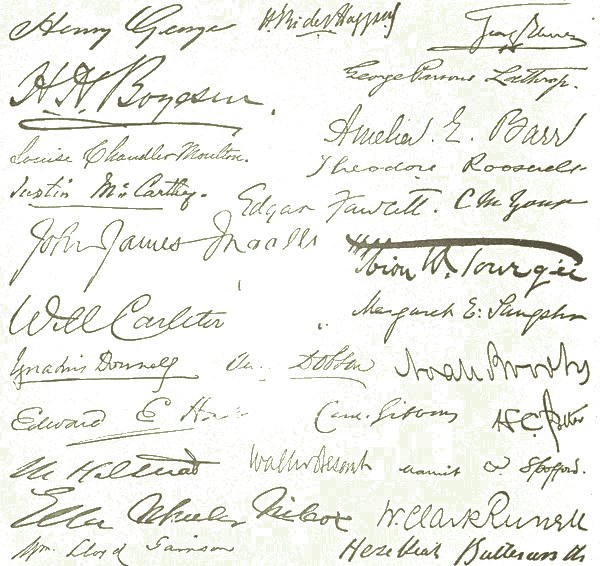 Henry George
H. Rider Haggard
H. H. Boyesen.
George Parsons Lathrop.
Amelia. E. Barr
Louise Chandler Moulton.
Theodore Roosevelt
Justin McCarthy.
Edgar Fawcett.
John James Ingalls
Albion W. Tourgée
Will Carleton
Margaret E. Sangster
Ignatius Donnelly
Dobson
Noah Brooks
Edward E
Walter Besant
Spofford.
Ella Wheeler Wilcox
W. Clark Russell
Wm. Lloyd Garrison
Hezekiah Butterworth